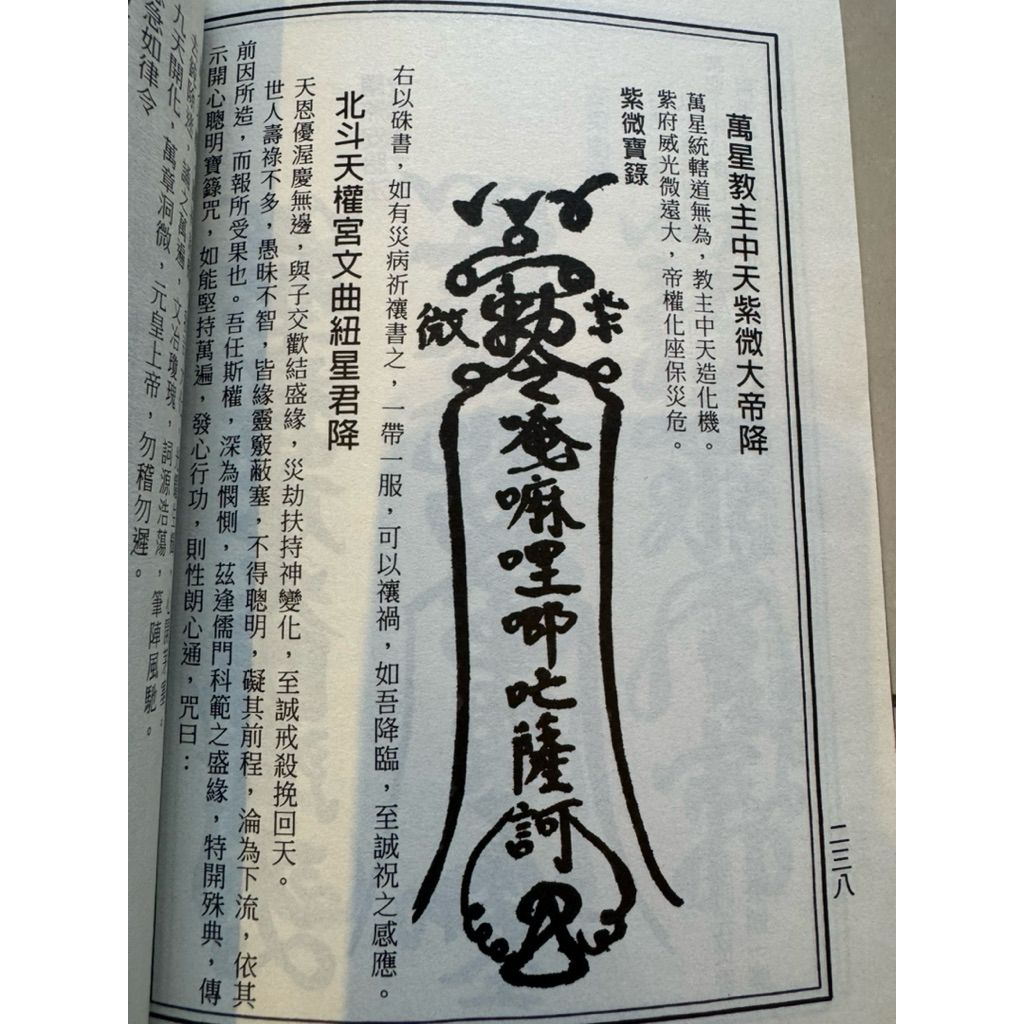 萬星教主中天紫微大帝降
萬星統轄道無為，教主中天造化機。
紫府威光微遠大，帝權化座保災危。
紫微寶籙
紫微
勅令
唵嘛哩唧吡薩訶
右以硃書，如有災病祈禳書之，一帶一服，可以禳禍，如吾降臨，至誠祝之感應。
北斗天權宮文曲紐星君降
天恩優渥慶無邊，與子交歡結盛緣，災劫扶持神變化，至誠戒殺挽回天。
世人壽祿不多，愚昧不智，皆緣靈竅蔽塞，不得聰明，礙其前程，淪為下流，依其
前因所造，而報所受果也。吾任斯權，深為憫惻，茲逢儒門科範之盛緣，特開殊典，傳
示開心聰明寶籙咒，如能堅持萬遍，發心行功，則性朗心通，咒曰：
誦之萬遍，文治瓊瑰，詞源浩蕩，筆陣風馳。
九天開化，萬章洞微，元皇上帝，勿稽勿遲。
急如律令
二三八